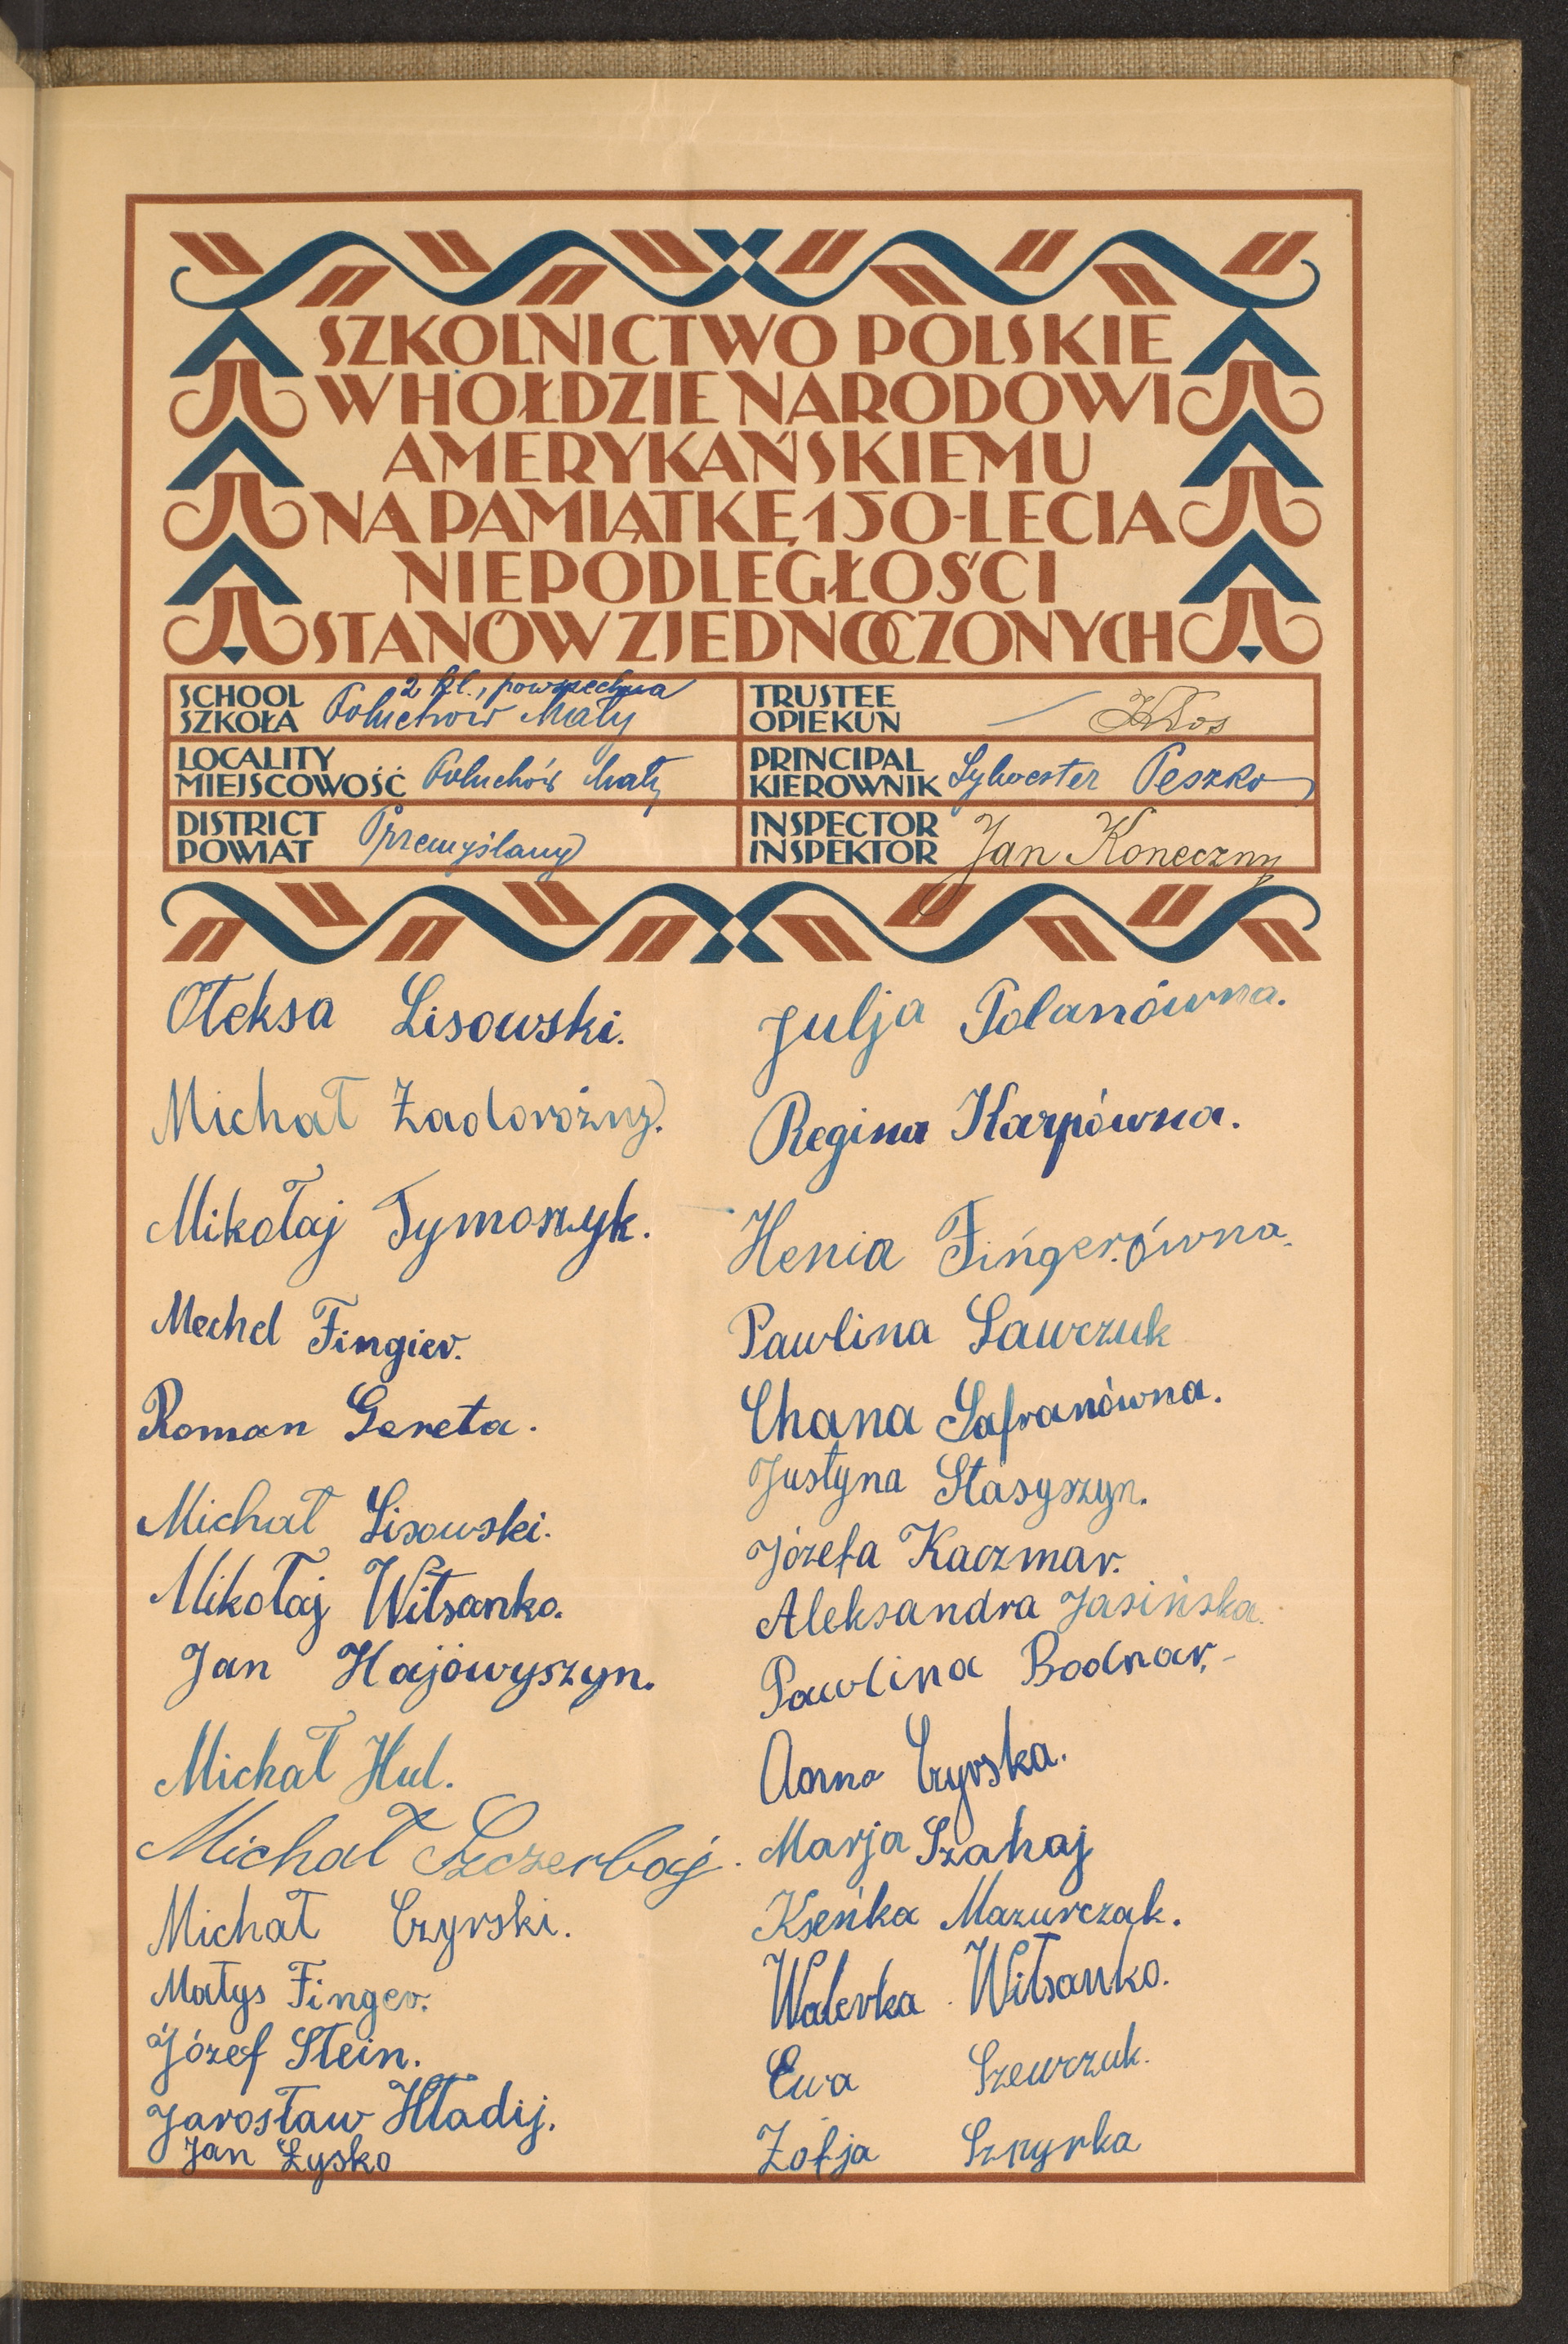 SZKOLNICTWO POLSKIE
W HOŁDZIE NARODOWI
AMERYKAŃSKIEMU
NA PAMIĄTKĘ 150-LECIA
NIEPODLEGŁOŚCI
STANÓW ZJEDNOCZONYCH
SCHOOL
SZKOŁA
2 kl., powszechna
Połuchów Mały
TRUSTEE
OPIEKUN
Kłos
LOCALITY
MIEJSCOWOŚĆ
Połuchów Mały
PRINCIPAL
KIEROWNIK
Sylwester Peszko
DISTRICT
POWIAT
Przemyślany
INSPECTOR
INSPEKTOR
Jan Koneczny
Ołeksa Lisowski.
Michał Zadorożny.
Mikołaj Tymoszyk.
Mechel Fingier.
Roman Gereta.
Michał Lisowski.
Mikołaj Witsanko.
Jan Hajowyszyn.
Michał Hul.
Michał Szczerbaj.
Michał Czyrski.
Matys Finger.
Józef Stein.
Jarosław Hładij.
Jan Łysko
Julja Polanówna.
Regina Karpówna.
Henia Fingerówna.
Pawlina Sawczuk
Chana Safranówna.
Justyna Stasyszyn.
Józefa Kaczmar.
Aleksandra Jasińska.
Pawlina Bodnar.-
Anna Czyrska.
Marja Szahaj
Kseńka Mazurczak.
Walerka Witsanko.
Ewa Szewczuk.
Zofja Sznyrka